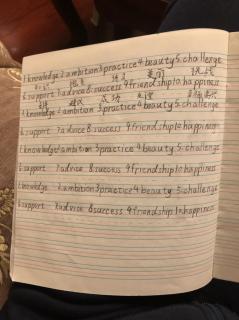 1.knowledge 2 ambition 3 practice 4 beauty 5.challenge
练习 美丽 挑战
6.support 7 advice 8 success 9 friendship 10 happiness
支持 建议 成功 友谊
1.knowledge 2 ambition 3 practice 4 beauty 5.challenge
6.support 7 advice 8 success 9 friendship 10 happiness
1.knowledge 2 ambition 3 practice 4 beauty 5.challenge
6.support 7 advice 8 success 9 friendship 10 happiness
1.knowledge 2.ambition 3 practice 4 beauty 5.challenge
6.support 7 advice 8 success 9 friendship 10 happiness